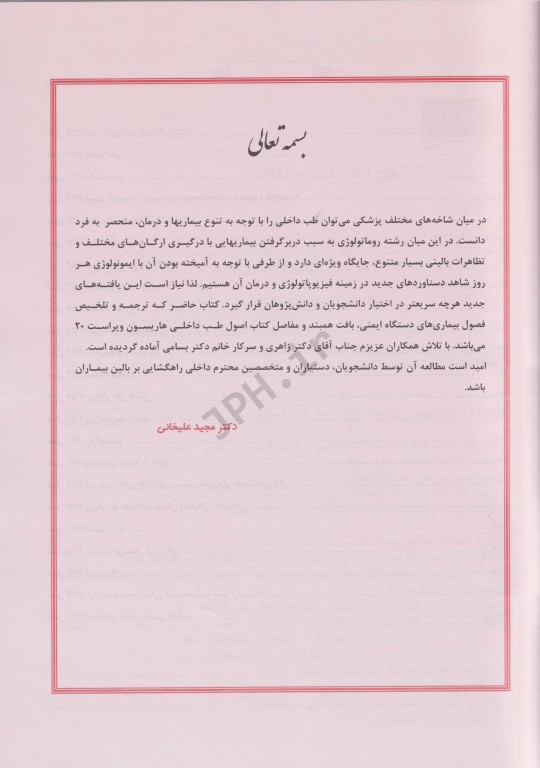 بسمه تعالی
در میان شاخه‌های مختلف پزشکی می‌توان طب داخلی را با توجه به تنوع بیماریها و درمان، منحصر به فرد
دانست. در این میان رشته روماتولوژی به سبب دربرگرفتن بیماریهایی با درگیری ارگان‌های مختلف و
تظاهرات بالینی بسیار متنوع، جایگاه ویژه‌ای دارد و از طرفی با توجه به آمیخته بودن آن با ایمونولوژی هر
روز شاهد دستاوردهای جدید در زمینه فیزیوپاتولوژی و درمان آن هستیم. لذا نیاز است این یافته‌های
جدید هرچه سریعتر در اختیار دانشجویان و دانش‌پژوهان قرار گیرد. کتاب حاضر که ترجمه و تلخیص
فصول بیماری‌های دستگاه ایمنی، بافت همبند و مفاصل کتاب اصول طب داخلی هاریسون ویراست ۲۰
می‌باشد. با تلاش همکاران عزیزم جناب آقای دکتر زاهری و سرکار خانم دکتر بسامی آماده گردیده است.
امید است مطالعه آن توسط دانشجویان، دستیاران و متخصصین محترم داخلی راهگشایی بر بالین بیماران
باشد.
دکتر مجید علیخانی
JPH.ir